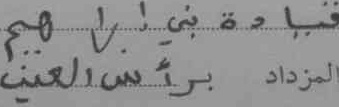 قيادة بني إبراهيم
المزداد برأس العين